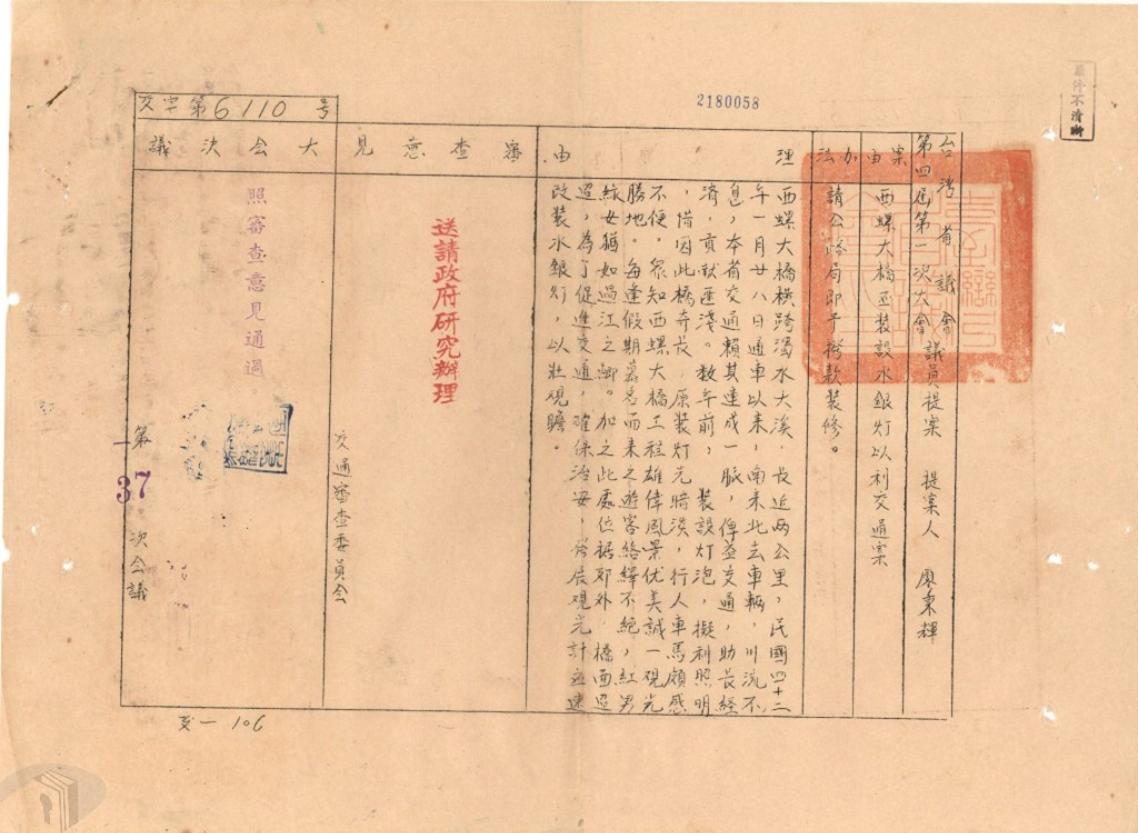 2180058
原件不清晰
交字第6110号
台灣省議會
第四屆第一次大會 議員提案 提案人 廖秉輝
案由
西螺大橋亟裝設水銀灯以利交通案
办法
請公路局即予撥款裝修。
理由
西螺大橋橫跨濁水大溪，長近两公里，民國四十二
年一月廿八日通車以來，南來北去車輛，川流不
息，本省交通賴其連成一脈，俾益交通，助長經
濟，貢献匪淺。数年前，裝設灯泡，擬利照明
，惜因此橋奇長，原装灯光暗淡，行人車馬頗感
不便。眾知西螺大橋工程雄偉風景优美誠一观光
勝地。每逢假期慕名而來之遊客絡繹不絕，紅男
綠女猶如過江之鯽。加之此處位据郊外，橋面迢
迢，為了促進交通，確保治安，發展观光計亟速
改装水銀灯，以壯观瞻。
審查意見
送請政府研究辦理
交通審查委員会
大会決議
照審查意見通過
第
37
次会議
交一 106